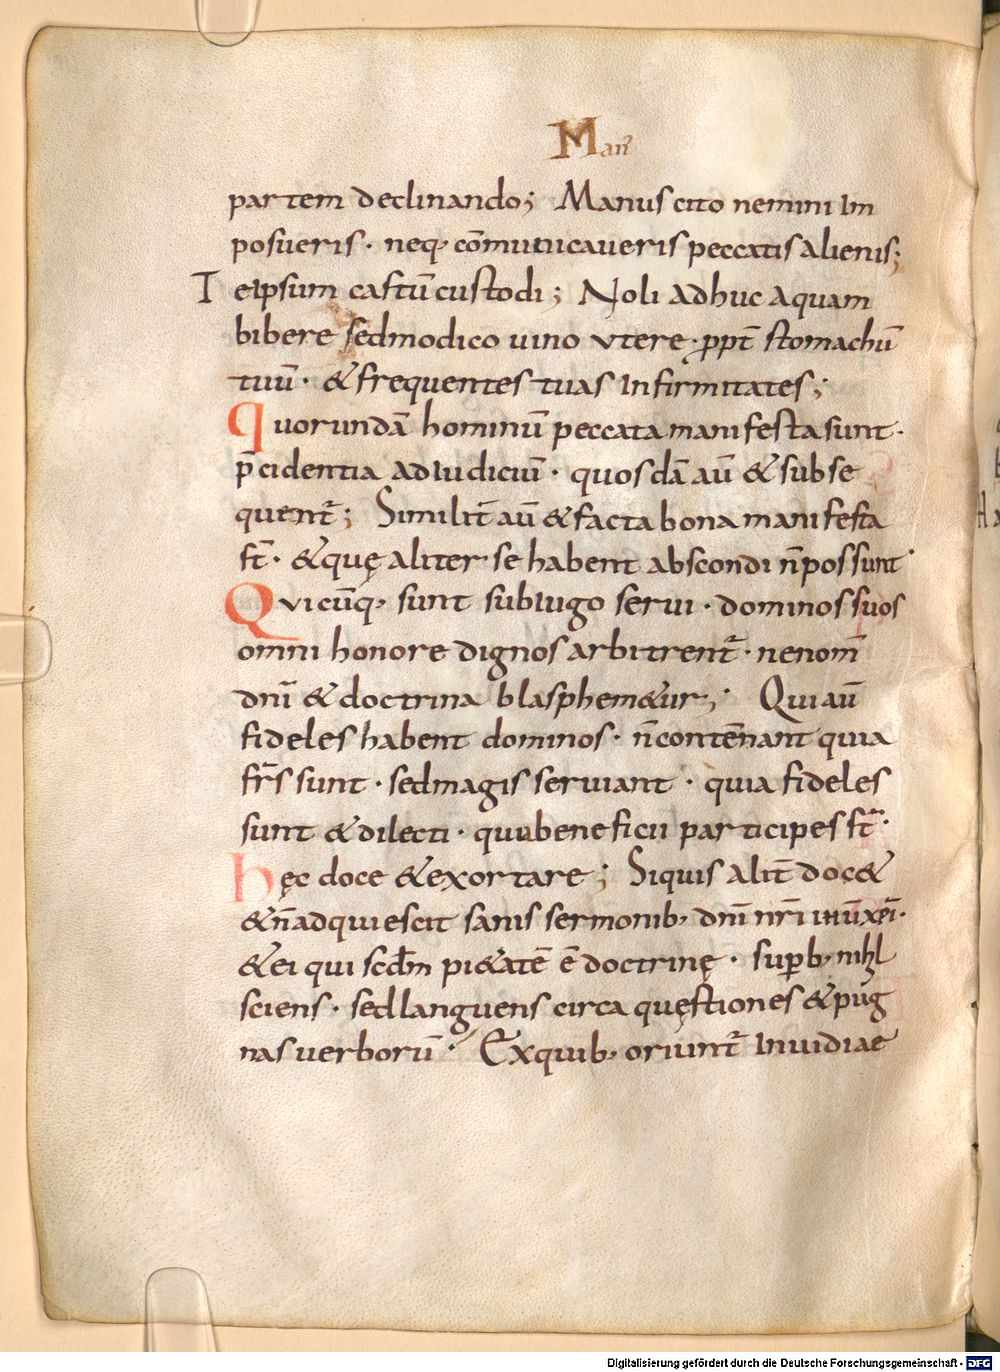 Man
partem declinando; Manus cito nemini im
posueris · neq; cōmunicaveris peccatis alienis;
Te ipsum castū custodi; Noli adhuc aquam
bibere sed modico uino utere · ꝓpt̄ stomachū
tuū · & frequentes tuas infirmitates;
Quorundā hominū peccata manifesta sunt ·
p̄cidentia ad iudiciū · quosdā aū & subse
quent̄; Similit̄ aū & facta bona manifesta
st̄ · & quę aliter se habent abscondi n̄ possunt ·
Quicūq; sunt sub iugo serui · dominos suos
omni honore dignos arbitrent̄ · ne nom̄
dn̄i & doctrina blasphem&ur; Qui aū
fideles habent dominos · n̄ contēnant quia
fr̄s sunt · sed magis seruiant · quia fideles
sunt & dilecti · qui beneficii participes st̄ ·
hęc doce & exortare; Siquis alit̄ doc&
& n̄ adquiescit sanis sermonib; dn̄i nr̄i ihū xp̄i ·
& ei qui scdm̄ pi&atē ē doctrinę · suꝑb; nihl
sciens · sed languens circa quęstiones & pug
nas uerborū · Ex quib; oriunt̄ inuidiae
Digitalisierung gefördert durch die Deutsche Forschungsgemeinschaft - DFG